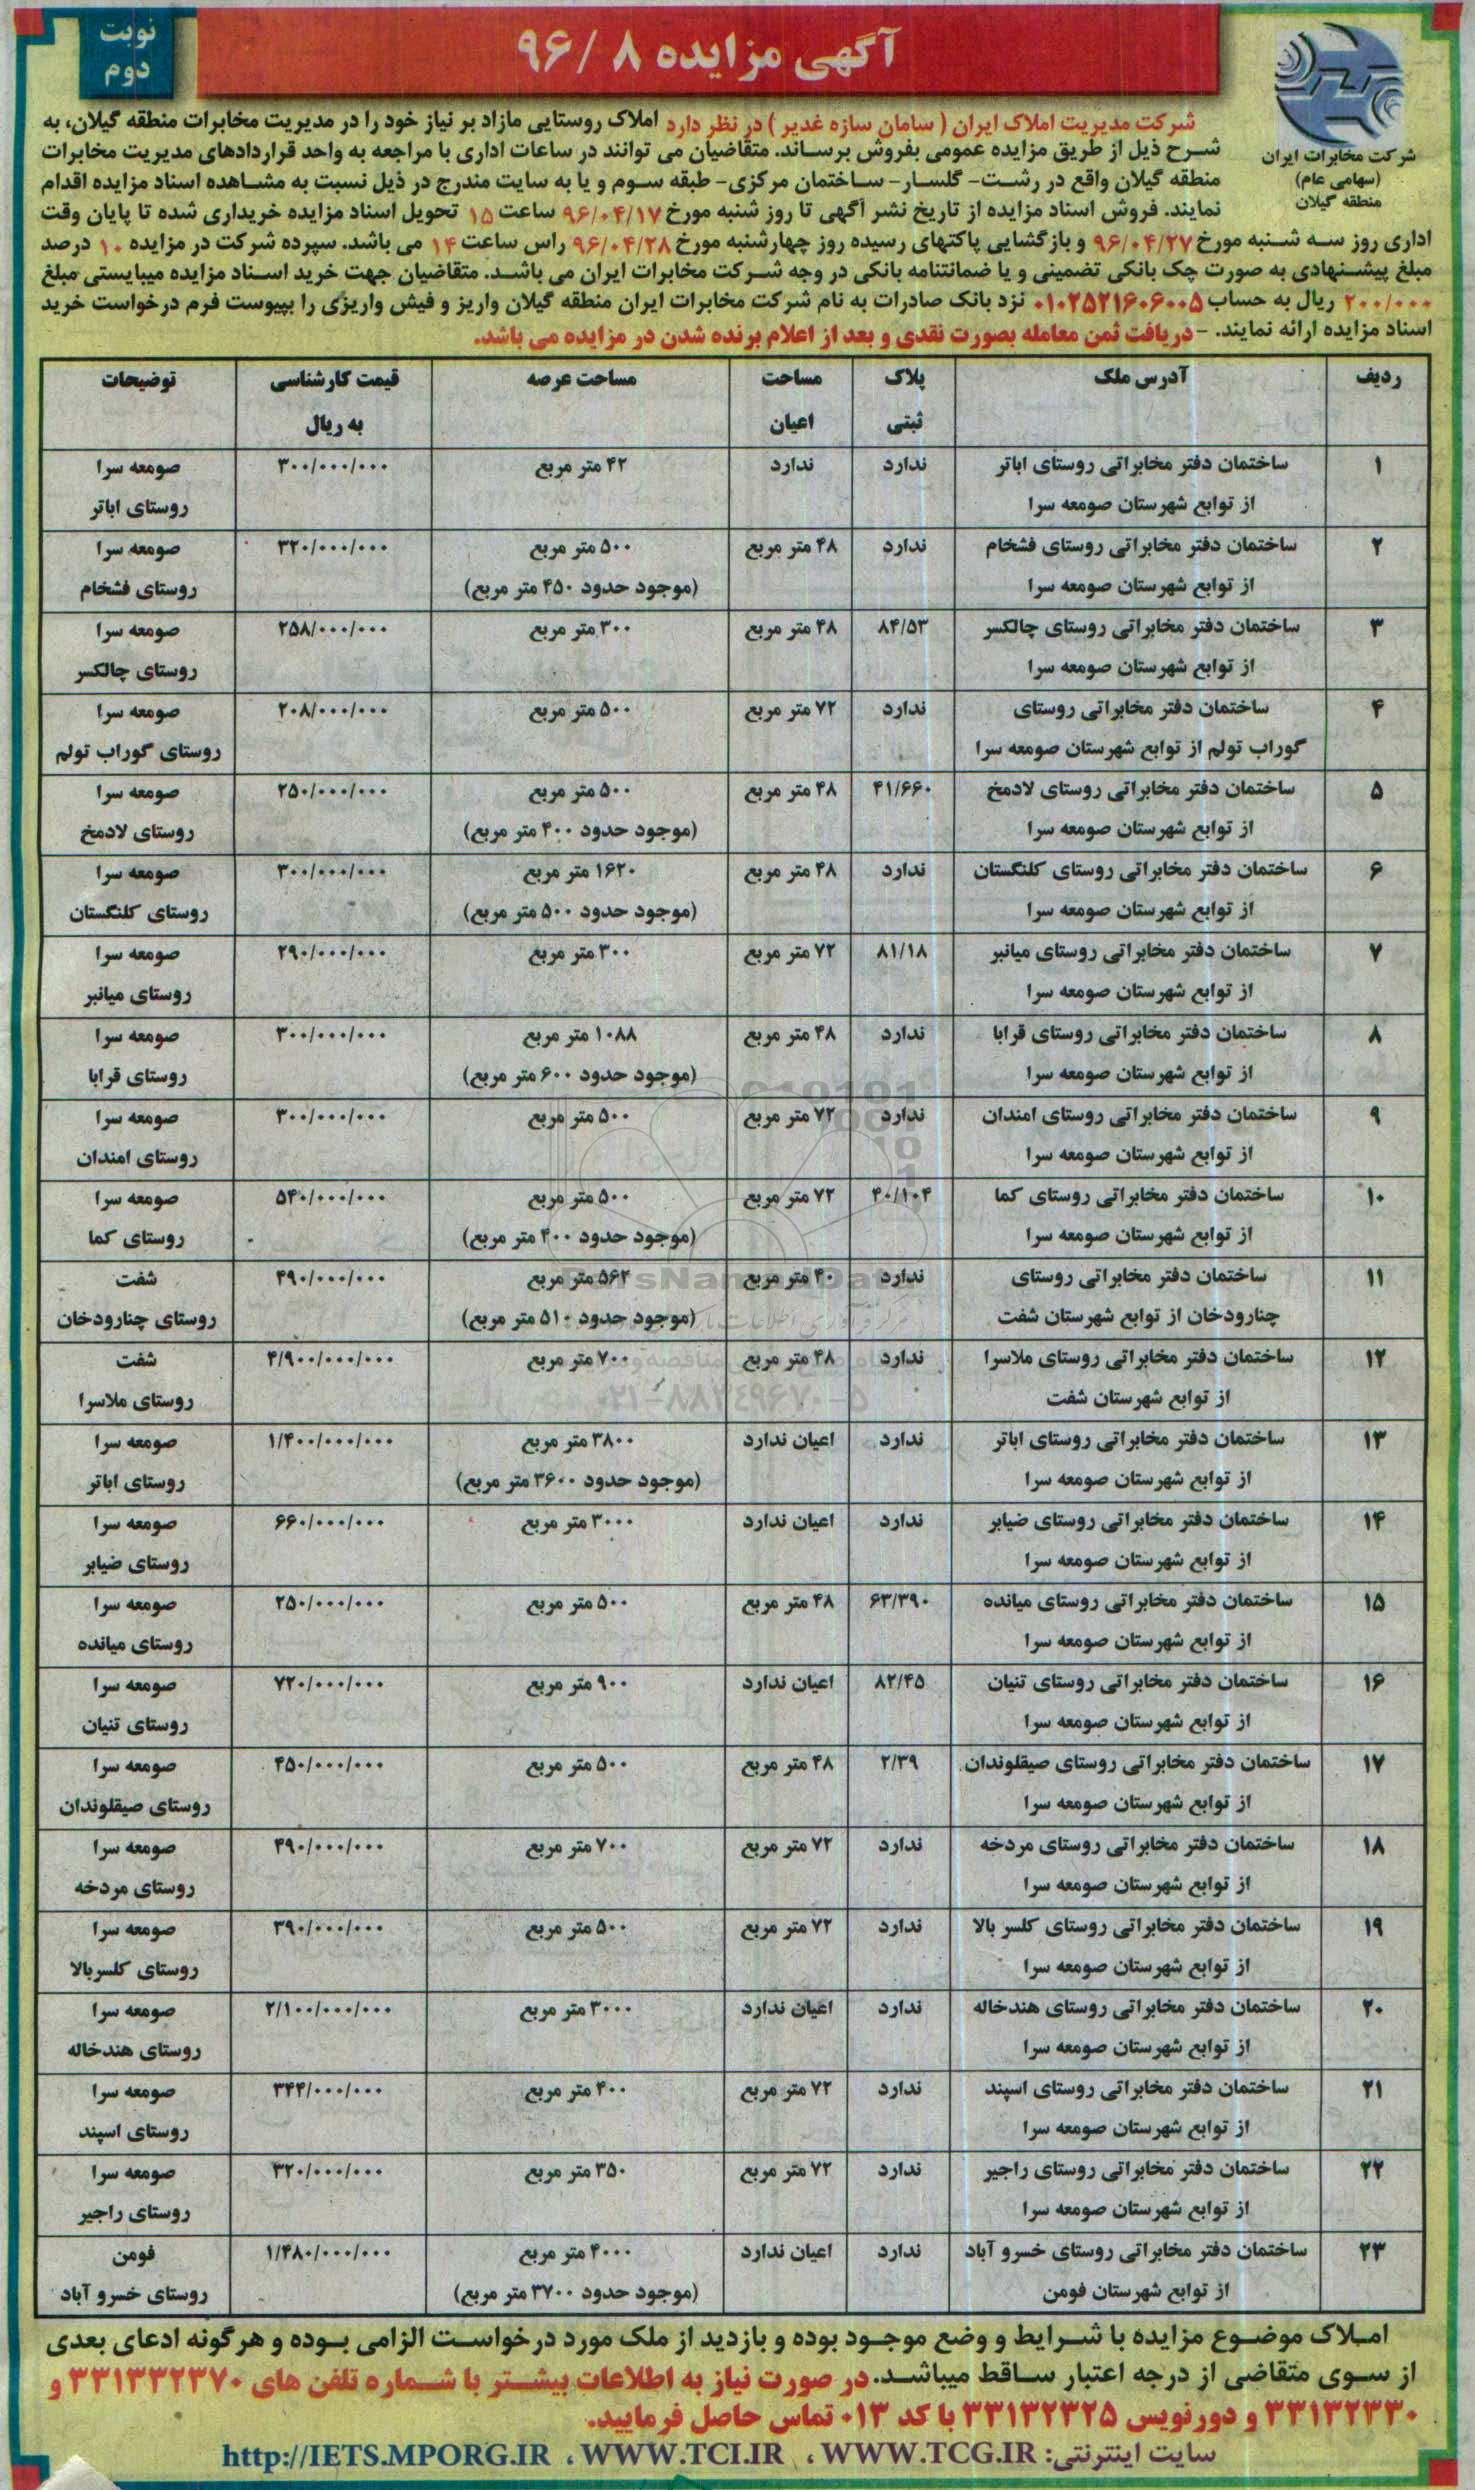 آگهی مزایده ۸ /۹۶
نوبت
دوم
شرکت مخابرات ایران
(سهامی عام)
منطقه گیلان
شرکت مدیریت املاک ایران ( سامان سازه غدیر ) در نظر دارد املاک روستایی مازاد بر نیاز خود را در مدیریت مخابرات منطقه گیلان، به
شرح ذیل از طریق مزایده عمومی بفروش برساند. متقاضیان می توانند در ساعات اداری با مراجعه به واحد قراردادهای مدیریت مخابرات
منطقه گیلان واقع در رشت- گلسار- ساختمان مرکزی- طبقه سوم و یا به سایت مندرج در ذیل نسبت به مشاهده اسناد مزایده اقدام
نمایند. فروش اسناد مزایده از تاریخ نشر آگهی تا روز شنبه مورخ ۹۶/۰۴/۱۷ ساعت ۱۵ تحویل اسناد مزایده خریداری شده تا پایان وقت
اداری روز سه شنبه مورخ ۹۶/۰۴/۲۷ و بازگشایی پاکتهای رسیده روز چهارشنبه مورخ ۹۶/۰۴/۲۸ راس ساعت ۱۴ می باشد. سپرده شرکت در مزایده ۱۰ درصد
مبلغ پیشنهادی به صورت چک بانکی تضمینی و یا ضمانتنامه بانکی در وجه شرکت مخابرات ایران می باشد. متقاضیان جهت خرید اسناد مزایده میبایستی مبلغ
۲۰۰/۰۰۰ ریال به حساب ۰۱۰۲۵۲۱۶۰۶۰۰۵ نزد بانک صادرات به نام شرکت مخابرات ایران منطقه گیلان واریز و فیش واریزی را بپیوست فرم درخواست خرید
اسناد مزایده ارائه نمایند. -دریافت ثمن معامله بصورت نقدی و بعد از اعلام برنده شدن در مزایده می باشد.
ردیف آدرس ملک پلاک مساحت مساحت عرصه قیمت کارشناسی توضیحات
ثبتی اعیان به ریال
۱ ساختمان دفتر مخابراتی روستای اباتر ندارد ندارد ۴۲ متر مربع ۳۰۰/۰۰۰/۰۰۰ صومعه سرا
از توابع شهرستان صومعه سرا روستای اباتر
۲ ساختمان دفتر مخابراتی روستای فشخام ندارد ۴۸ متر مربع ۵۰۰ متر مربع ۳۲۰/۰۰۰/۰۰۰ صومعه سرا
از توابع شهرستان صومعه سرا (موجود حدود ۴۵۰ متر مربع) روستای فشخام
۳ ساختمان دفتر مخابراتی روستای چالکسر ۸۴/۵۳ ۴۸ متر مربع ۳۰۰ متر مربع ۲۵۸/۰۰۰/۰۰۰ صومعه سرا
از توابع شهرستان صومعه سرا روستای چالکسر
۴ ساختمان دفتر مخابراتی روستای ندارد ۷۲ متر مربع ۵۰۰ متر مربع ۲۰۸/۰۰۰/۰۰۰ صومعه سرا
گوراب تولم از توابع شهرستان صومعه سرا روستای گوراب تولم
۵ ساختمان دفتر مخابراتی روستای لادمخ ۴۱/۶۶۰ ۴۸ متر مربع ۵۰۰ متر مربع ۲۵۰/۰۰۰/۰۰۰ صومعه سرا
از توابع شهرستان صومعه سرا (موجود حدود ۴۰۰ متر مربع) روستای لادمخ
۶ ساختمان دفتر مخابراتی روستای کلنگستان ندارد ۴۸ متر مربع ۱۶۲۰ متر مربع ۳۰۰/۰۰۰/۰۰۰ صومعه سرا
از توابع شهرستان صومعه سرا (موجود حدود ۵۰۰ متر مربع) روستای کلنگستان
۷ ساختمان دفتر مخابراتی روستای میانبر ۸۱/۱۸ ۷۲ متر مربع ۳۰۰ متر مربع ۲۹۰/۰۰۰/۰۰۰ صومعه سرا
از توابع شهرستان صومعه سرا روستای میانبر
۸ ساختمان دفتر مخابراتی روستای قرابا ندارد ۴۸ متر مربع ۱۰۸۸ متر مربع ۳۰۰/۰۰۰/۰۰۰ صومعه سرا
از توابع شهرستان صومعه سرا (موجود حدود ۶۰۰ متر مربع) روستای قرابا
۹ ساختمان دفتر مخابراتی روستای امندان ندارد ۷۲ متر مربع ۵۰۰ متر مربع ۳۰۰/۰۰۰/۰۰۰ صومعه سرا
از توابع شهرستان صومعه سرا روستای امندان
۱۰ ساختمان دفتر مخابراتی روستای کما ۴۰/۱۰۴ ۷۲ متر مربع ۵۰۰ متر مربع ۵۴۰/۰۰۰/۰۰۰ صومعه سرا
از توابع شهرستان صومعه سرا (موجود حدود ۴۰۰ متر مربع) روستای کما
۱۱ ساختمان دفتر مخابراتی روستای ندارد ۴۰ متر مربع ۵۶۲ متر مربع ۴۹۰/۰۰۰/۰۰۰ شفت
چنارودخان از توابع شهرستان شفت (موجود حدود ۵۱۰ متر مربع) روستای چنارودخان
۱۲ ساختمان دفتر مخابراتی روستای ملاسرا ندارد ۴۸ متر مربع ۷۰۰ متر مربع ۴/۹۰۰/۰۰۰/۰۰۰ شفت
از توابع شهرستان شفت روستای ملاسرا
۰۲۱-۸۸۳۴۹۶۷۰-۵
۱۳ ساختمان دفتر مخابراتی روستای اباتر ندارد اعیان ندارد ۳۸۰۰ متر مربع ۱/۴۰۰/۰۰۰/۰۰۰ صومعه سرا
از توابع شهرستان صومعه سرا (موجود حدود ۳۶۰۰ متر مربع) روستای اباتر
۱۴ ساختمان دفتر مخابراتی روستای ضیابر ندارد اعیان ندارد ۳۰۰۰ متر مربع ۶۶۰/۰۰۰/۰۰۰ صومعه سرا
از توابع شهرستان صومعه سرا روستای ضیابر
۱۵ ساختمان دفتر مخابراتی روستای میانده ۶۳/۳۹۰ ۴۸ متر مربع ۵۰۰ متر مربع ۲۵۰/۰۰۰/۰۰۰ صومعه سرا
از توابع شهرستان صومعه سرا روستای میانده
۱۶ ساختمان دفتر مخابراتی روستای تنیان ۸۲/۴۵ اعیان ندارد ۹۰۰ متر مربع ۷۲۰/۰۰۰/۰۰۰ صومعه سرا
از توابع شهرستان صومعه سرا روستای تنیان
۱۷ ساختمان دفتر مخابراتی روستای صیقلوندان ۲/۳۹ ۴۸ متر مربع ۵۰۰ متر مربع ۴۵۰/۰۰۰/۰۰۰ صومعه سرا
از توابع شهرستان صومعه سرا روستای صیقلوندان
۱۸ ساختمان دفتر مخابراتی روستای مردخه ندارد ۷۲ متر مربع ۷۰۰ متر مربع ۴۹۰/۰۰۰/۰۰۰ صومعه سرا
از توابع شهرستان صومعه سرا روستای مردخه
۱۹ ساختمان دفتر مخابراتی روستای کلسر بالا ندارد ۷۲ متر مربع ۵۰۰ متر مربع ۳۹۰/۰۰۰/۰۰۰ صومعه سرا
از توابع شهرستان صومعه سرا روستای کلسربالا
۲۰ ساختمان دفتر مخابراتی روستای هندخاله ندارد اعیان ندارد ۳۰۰۰ متر مربع ۲/۱۰۰/۰۰۰/۰۰۰ صومعه سرا
از توابع شهرستان صومعه سرا روستای هندخاله
۲۱ ساختمان دفتر مخابراتی روستای اسپند ندارد ۷۲ متر مربع ۴۰۰ متر مربع ۳۴۴/۰۰۰/۰۰۰ صومعه سرا
از توابع شهرستان صومعه سرا روستای اسپند
۲۲ ساختمان دفتر مخابراتی روستای راجیر ندارد ۷۲ متر مربع ۳۵۰ متر مربع ۳۲۰/۰۰۰/۰۰۰ صومعه سرا
از توابع شهرستان صومعه سرا روستای راجیر
۲۳ ساختمان دفتر مخابراتی روستای خسرو آباد ندارد اعیان ندارد ۴۰۰۰ متر مربع ۱/۴۸۰/۰۰۰/۰۰۰ فومن
از توابع شهرستان فومن (موجود حدود ۳۷۰۰ متر مربع) روستای خسرو آباد
املاک موضوع مزایده با شرایط و وضع موجود بوده و بازدید از ملک مورد درخواست الزامی بوده و هرگونه ادعای بعدی
از سوی متقاضی از درجه اعتبار ساقط میباشد. در صورت نیاز به اطلاعات بیشتر با شماره تلفن های ۳۳۱۳۲۳۷۰ و
۳۳۱۳۲۳۳۰ و دورنویس ۳۳۱۳۲۳۲۵ با کد ۰۱۳ تماس حاصل فرمایید.
سایت اینترنتی: WWW.TCG.IR ، WWW.TCI.IR ، http://IETS.MPORG.IR